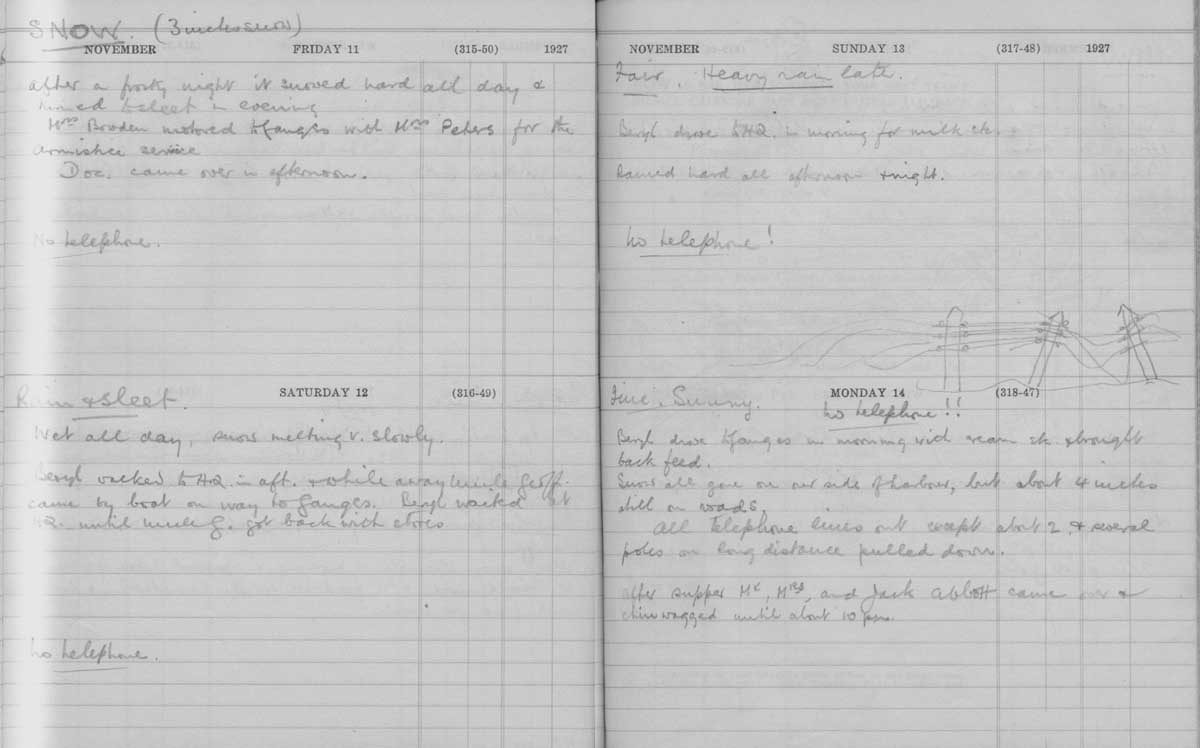 SNOW. (3 inches snow)
NOVEMBER FRIDAY 11 (315-50) 1927
After a frosty night it snowed hard all day &
turned to sleet in evening
Mrs Bowden motored to Ganges with Mrs Peters for the
Armistice service
Doc. came over in afternoon.
No telephone.
SATURDAY 12 (316-49)
Rain & sleet.
Wet all day, snow melting v. slowly.
Beryl walked to HQ. in aft. & while away Uncle Geoff.
came by boat on way to Ganges. Beryl waited at
HQ. until Uncle G. got back with stores
No telephone.
NOVEMBER SUNDAY 13 (317-48) 1927
Fair. Heavy rain late.
Beryl drove to HQ. in morning for milk etc.
Rained hard all afternoon & night.
No telephone!
MONDAY 14 (318-47)
Fine. Sunny. No telephone!!
Beryl drove to Ganges in morning with cream etc. & brought
back feed.
Snow all gone on our side of harbour, but about 4 inches
still on roads.
All telephone lines out except about 2. & several
poles on long distance pulled down.
After supper Mr, Mrs, and Jack Abbott came over &
chinwagged until about 10 pm.